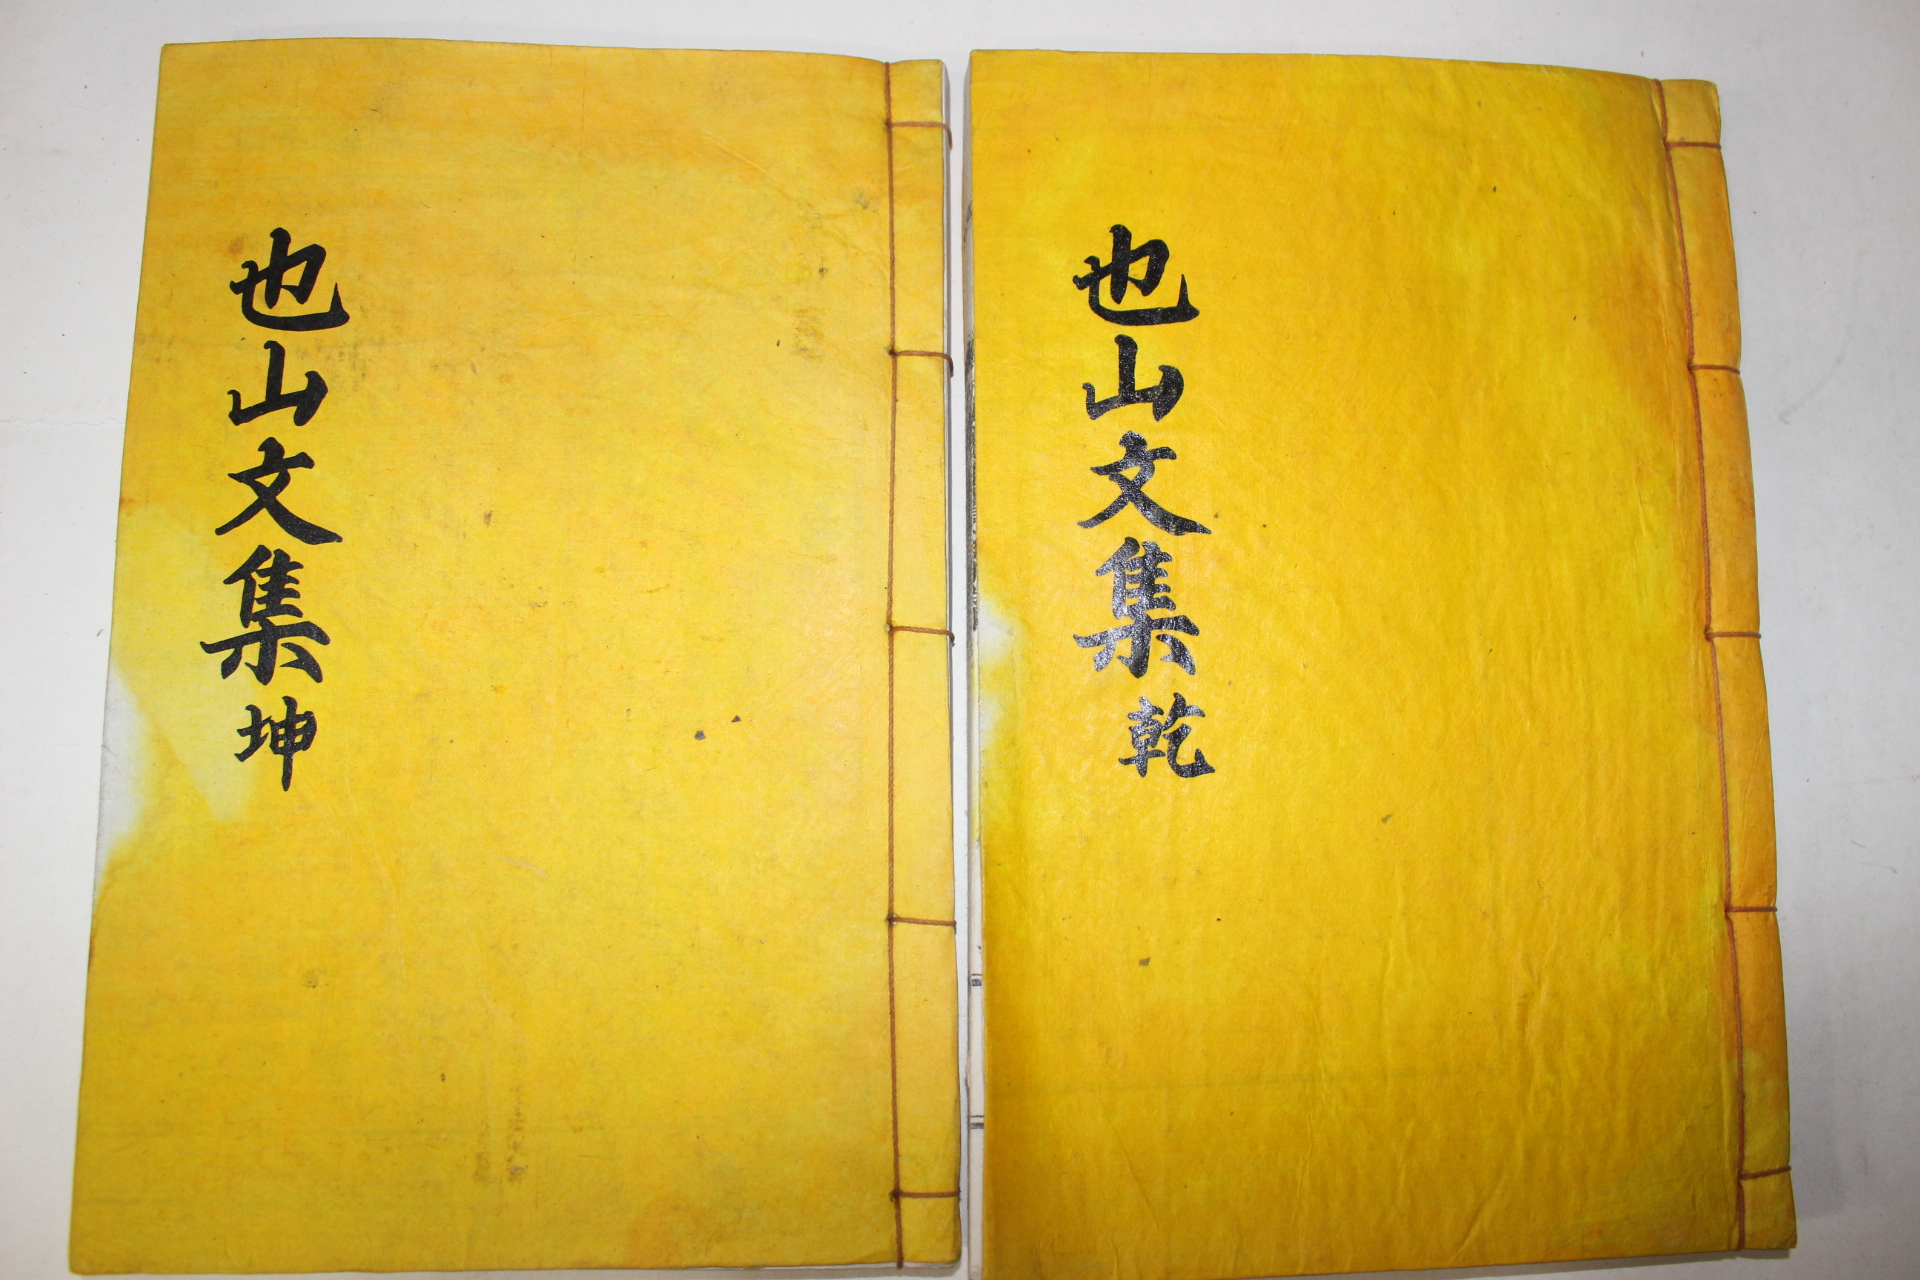 也山文集乾
也山文集坤